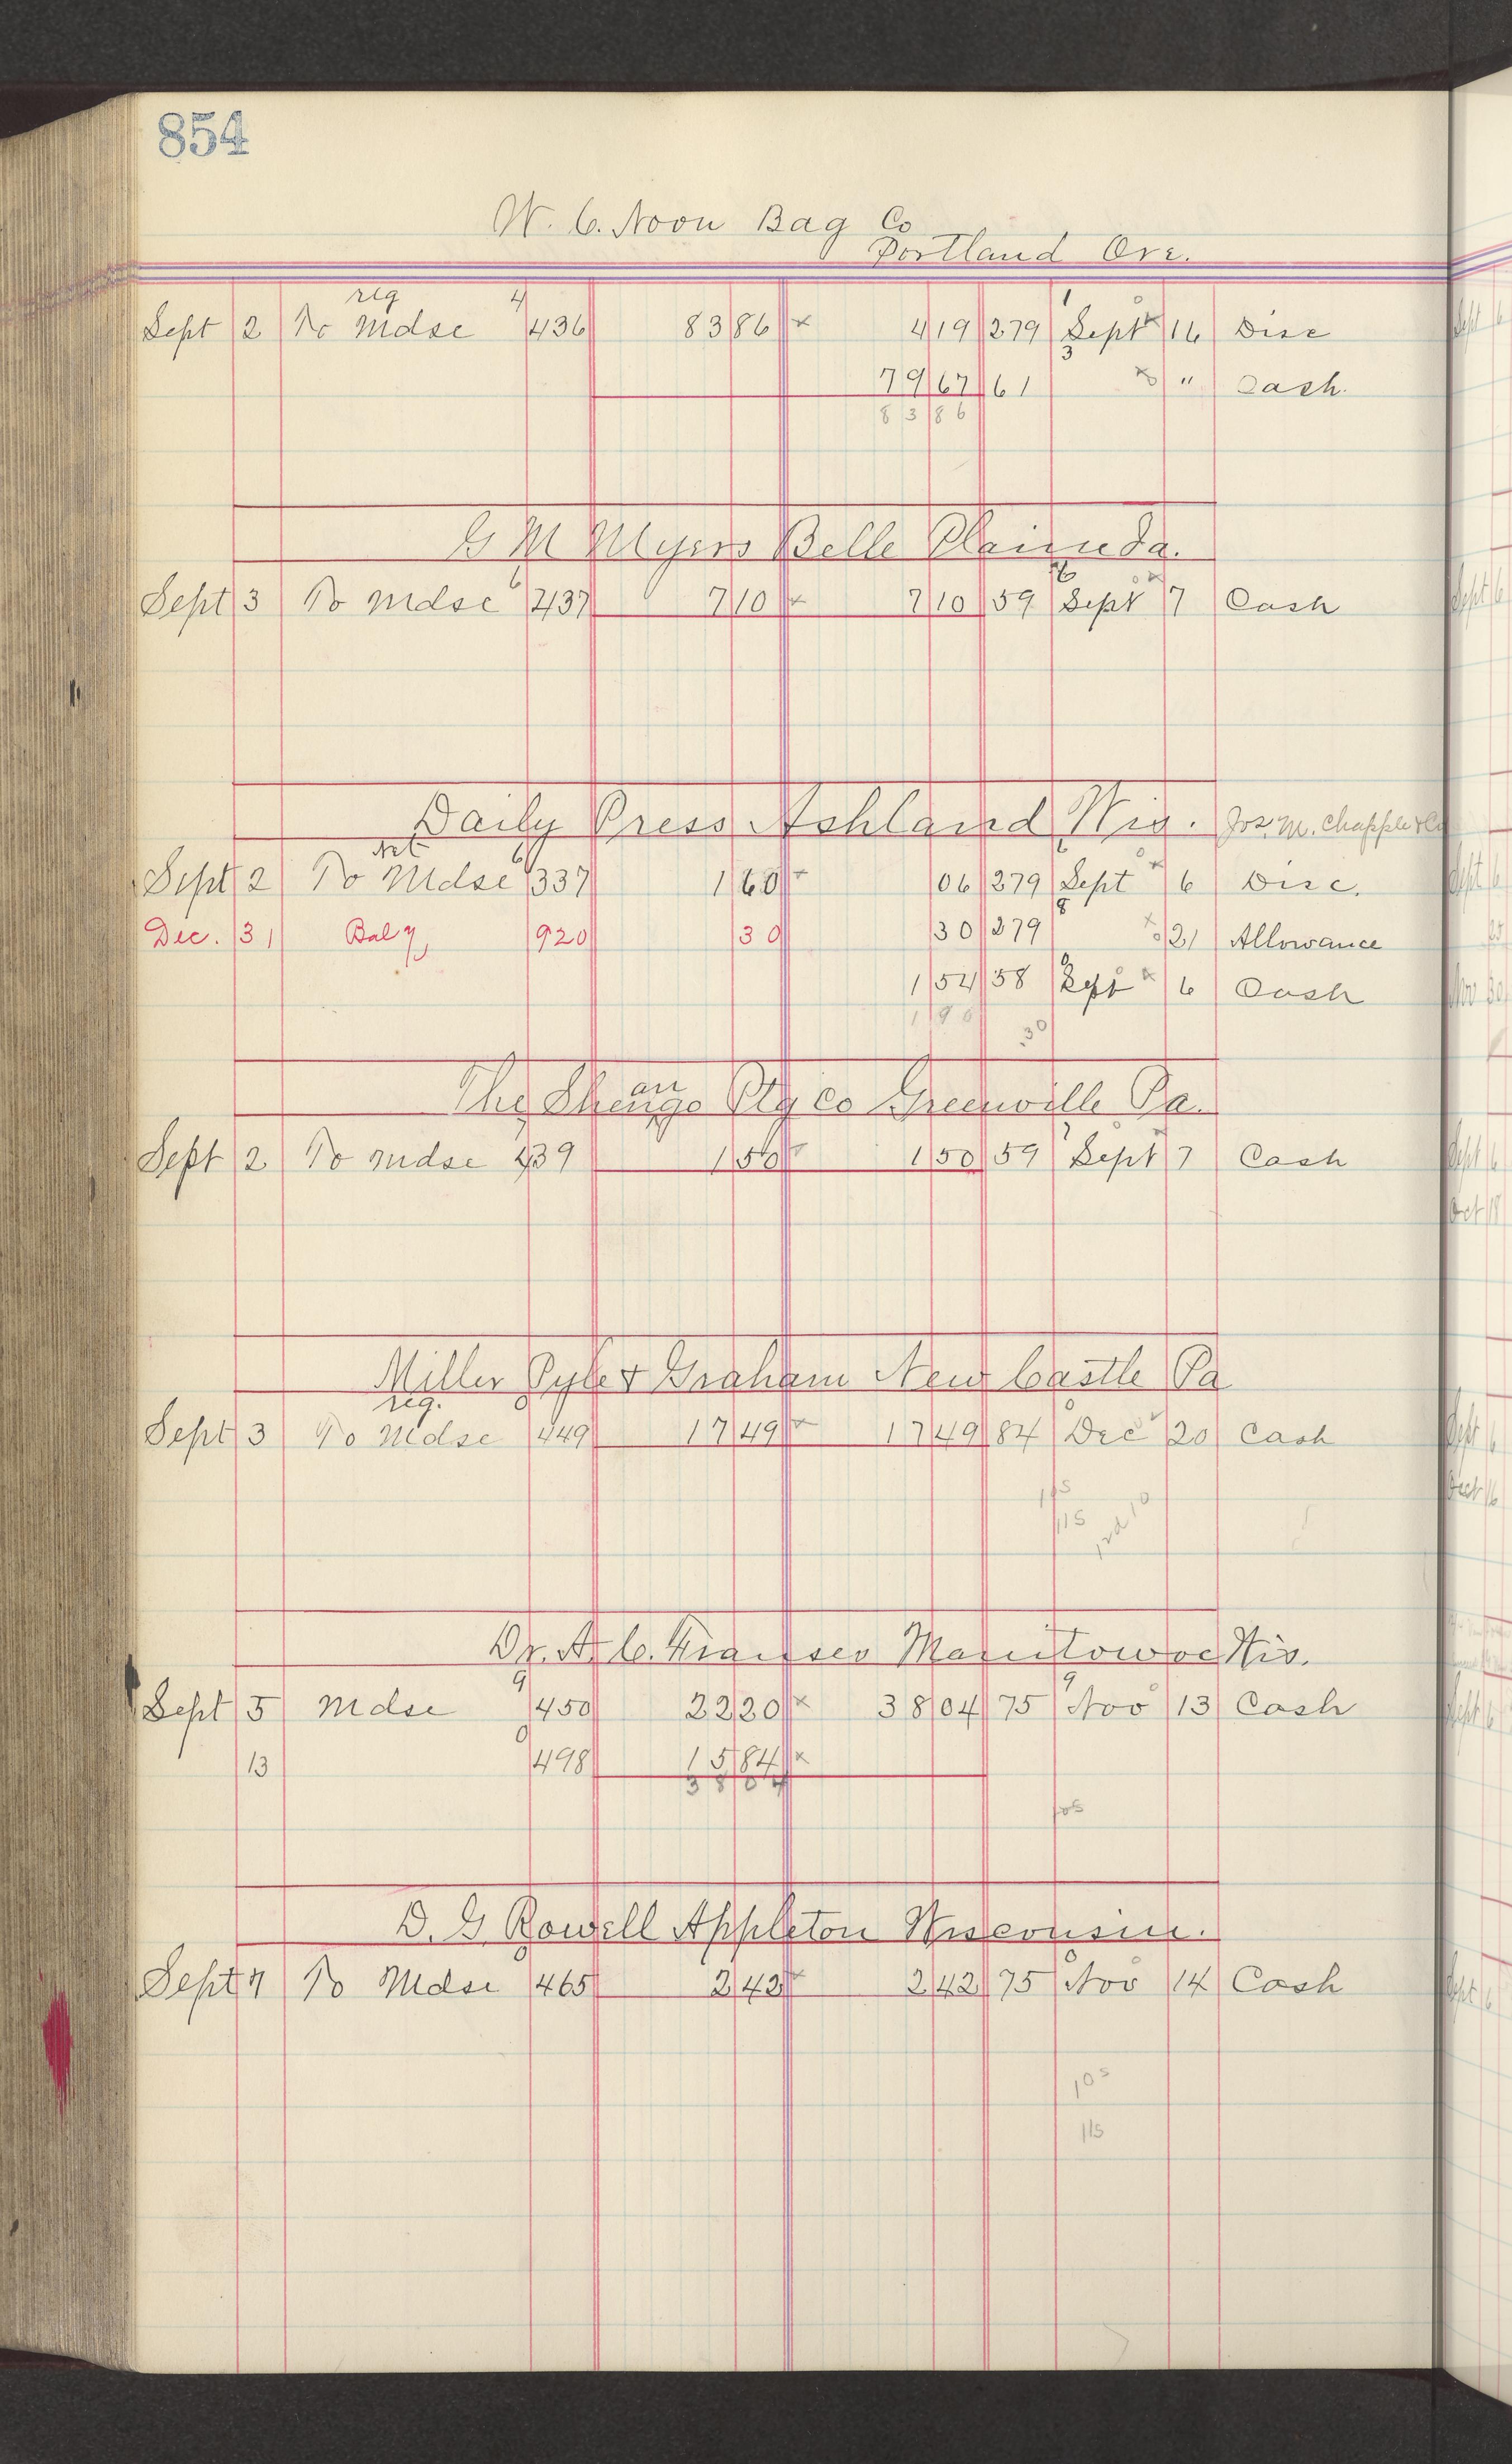 854
W. C. Noon Bag Co
Portland Ore.
reg 4 1
Sept 2 To Mdse 436 83 86 x 4 19 279 Sept 16 Disc
3
79 67 61 " Cash.
83 86
G M Myers Belle Plaine Ia.
6
Sept 3 To Mdse 437 7 10 x 7 10 59 Sept 7 Cash
Daily Press Ashland Wis. Jos. M. Chapple & Co
Net 6
Sept 2 To Mdse 337 1 60 06 279 Sept 6 Disc.
8
Dec. 31 Bal 920 30 30 279 21 Allowance
1 54 58 Sept 6 Cash
1 90 .30
an
The Shenango Ptg Co Greenville Pa.
Sept 2 To Mdse 439 1 50 1 50 59 Sept 7 Cash
Miller Pyle & Graham New Castle Pa
reg. 0
Sept 3 To Mdse 449 17 49 x 17 49 84 Dec 20 Cash
115
Dr. A. C. Fraser Manitowoc Wis.
9 9
Sept 5 Mdse 450 22 20 x 38 04 75 Nov 13 Cash
0
13 498 15 84 x
38 04
D. G. Rowell Appleton Wisconsin.
0 0
Sept 7 To Mdse 465 2 42 x 2 42 75 Nov 14 Cash
10s
11s